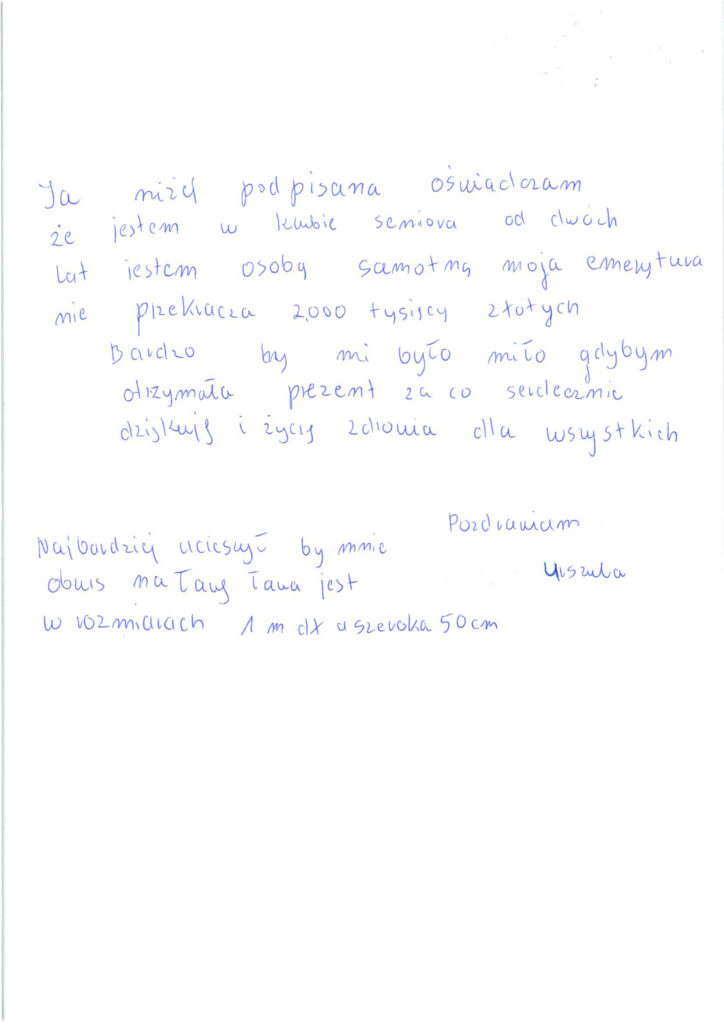 Ja niżej podpisana oświadczam
że jestem w klubie seniora od dwóch
lat jestem osobą samotną moja emerytura
nie przekracza 2,000 tysięcy złotych
Bardzo by mi było miło gdybym
otrzymała prezent za co serdecznie
dziękuję i życzę zdrowia dla wszystkich
Pozdrawiam
Urszula
Najbardziej ucieszył by mnie
obrus na ławę ława jest
w rozmiarach 1 m dł a szeroka 50 cm